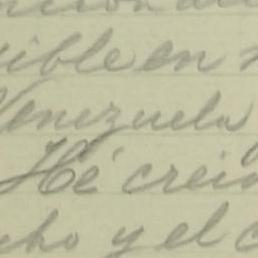 ible en
Venezuela
Hé creido
cho y el